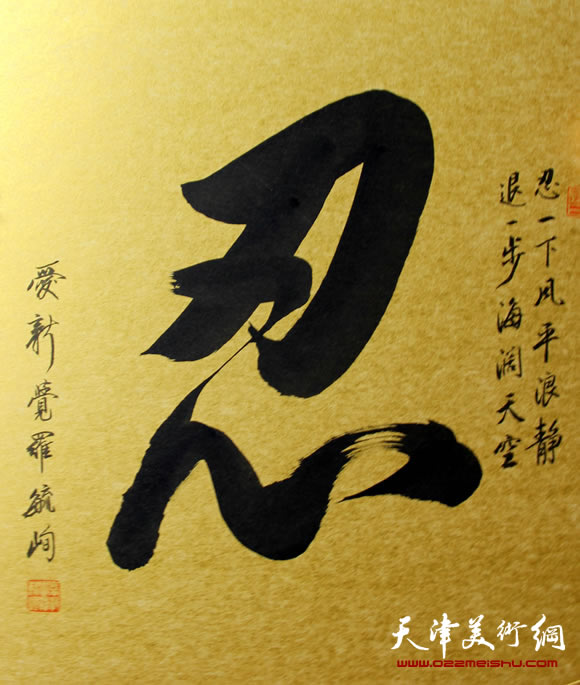 忍
忍一下风平浪静
退一步海阔天空
愛新覺羅毓峋
天津美術網
www.022meishu.com